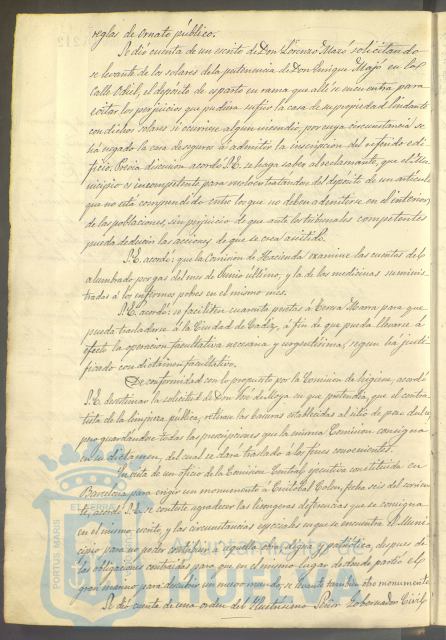 reglas de ornato público.
Se dió cuenta de un escrito de Don Lorenzo Mazó solicitando
se levante de los solares de la pertenencia de Don Enrique Majó en la
Calle Odiel, el depósito de esparto en rama que allí se encuentra para
evitar los perjuicios que pudiera sufrir la casa de su propiedad lindante
con dichos solares si ocurriese algun incendio, por cuya circunstancia se
há negado la casa de seguros á admitir la inscripcion del referido edi-
ficio. Prévia discusion acordó S.E. se haga saber al reclamante, que el Mu-
nicipio es incompetente para resolver tratándose del depósito de un artículo
que no está comprendido entre los que no deben admitirse en el interior
de las poblaciones, sin perjuicio de que ante los tribunales competentes
pueda deducir las acciones de que se crea asistido.
S.E. acordó: que la Comision de Hacienda examine las cuentas del
alumbrado por gas del mes de Junio último, y la de las medicinas suminis-
tradas á los enfermos pobres en el mismo mes.
S.E. acordó: se faciliten cuarenta pesetas á Teresa Marra para que
pueda trasladarse á la Ciudad de Cadiz, á fin de que pueda llevarse á
efecto la operacion facultativa necesaria y urgentísima, segun ha justi-
ficado con dictámen facultativo.
De conformidad con lo propuesto por la Comision de higiene, acordó
S.E. desestimar la solicitud de Don José de Moya en que pretendia, que el contra-
tista de la limpieza pública, retirara las basuras establecidas al sitio de
pero guardándose todas las prescripciones que la misma Comision consigna
en su dictamen, del cual se dara traslado á los fines convenientes.
En vista de un oficio de la Comision Central ejecutiva constituida en
Barcelona para erigir un monumento á Cristobal Colon, fecha seis del corrien-
te, acordó S.E. se conteste agradecer las lisongeras deferencias que se consignan
en el mismo escrito, y las circunstancias especiales en que se encuentra el Muni-
cipio para no poder contribuir á aquella obra digna y patriótica, despues de
las obligaciones contraidas para que en el mismo lugar de donde partió el
gran marino para descubrir un nuevo mundo, se levante tambien otro monumento.
Se dió cuenta de una órden del Ilustrísimo Señor Gobernador Civil
PORTUS MARIS
ET TERRAE
Ayuntamiento de
HUELVA